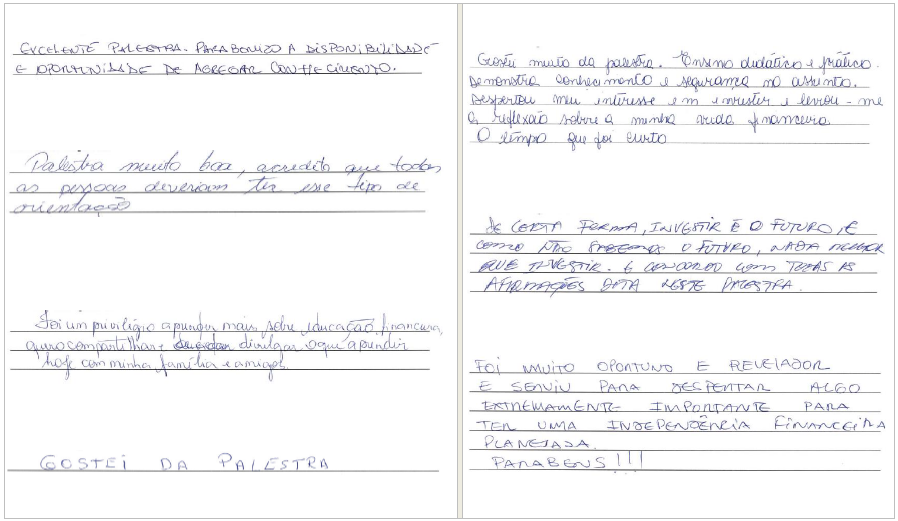 EXCELENTE PALESTRA. PARABENIZO A DISPONIBILIDADE
E OPORTUNIDADE DE AGREGAR CONHECIMENTO.
Palestra muito boa, acredito que todas
as pessoas deveriam ter esse tipo de
orientação
Foi um privilégio aprender mais sobre educação financeira,
quero compartilhar e divulgar o que aprendi
hoje com minha família e amigos.
GOSTEI DA PALESTRA
Gostei muito da palestra. Ensino didático e prático.
Demonstra conhecimento e segurança no assunto.
Despertou meu interesse em investir e levou-me
a reflexão sobre a minha vida financeira.
O tempo que foi curto
DE CERTA FORMA, INVESTIR É O FUTURO, E
COMO NÃO SABEMOS O FUTURO, NADA MELHOR
QUE INVESTIR. E CONCORDO COM TODAS AS
AFIRMAÇÕES DITA NESTE PALESTRA.
FOI MUITO OPORTUNO E REVELADOR
E SERVIU PARA DESPERTAR ALGO
EXTREMAMENTE IMPORTANTE PARA
TER UMA INDEPENDÊNCIA FINANCEIRA
PLANEJADA.
PARABENS!!!